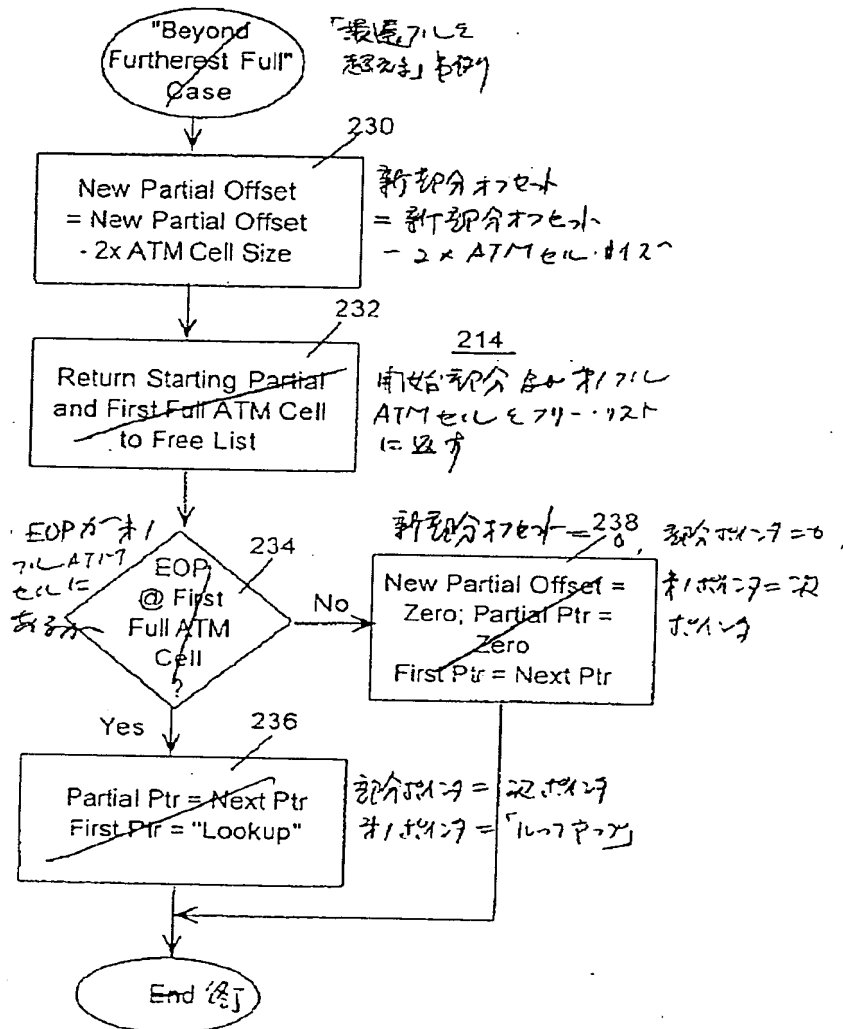 "Beyond
Furtherest Full"
Case
「最遠フルを
超える」場合
230
New Partial Offset
= New Partial Offset
- 2x ATM Cell Size
新部分オフセット
= 新部分オフセット
- 2 x ATMセル・サイズ
232
Return Starting Partial
and First Full ATM Cell
to Free List
214
開始部分 および 第1フル
ATMセルをフリー・リスト
に返す
EOPが第1
フルATM
セルに
あるか
234
EOP
@ First
Full ATM
Cell
?
No
新部分オフセット=0, 部分ポインタ=0,
第1ポインタ=次
ポインタ
238
New Partial Offset =
Zero; Partial Ptr =
Zero
First Ptr = Next Ptr
Yes
236
Partial Ptr = Next Ptr
First Ptr = "Lookup"
部分ポインタ = 次ポインタ
第1ポインタ = 「ルックアップ」
End 終了